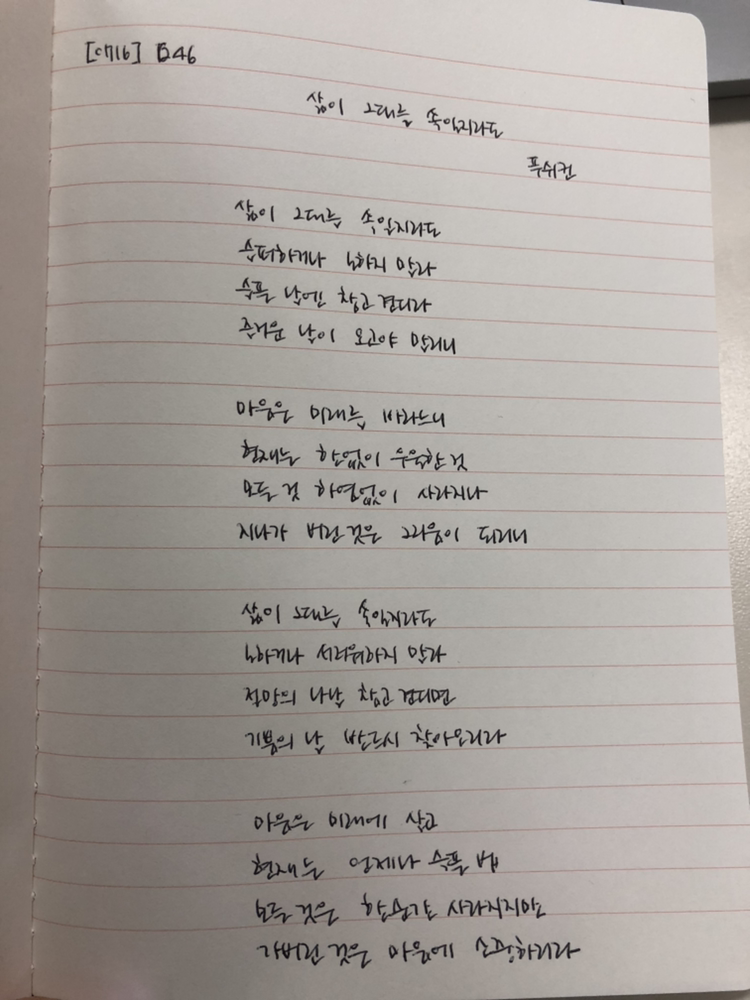 [0716] B46
삶이 그대를 속일지라도
푸쉬킨
삶이 그대를 속일지라도
슬퍼하거나 노하지 말라
슬픈 날엔 참고 견디라
즐거운 날이 오고야 말리니
마음은 미래를 바라느니
현재는 한없이 우울한 것
모든 것 하염없이 사라지나
지나가 버린 것은 그리움이 되리니
삶이 그대를 속일지라도
노하거나 서러워하지 말라
절망의 나날 참고 견디면
기쁨의 날 반드시 찾아오리라
마음은 미래에 살고
현재는 언제나 슬픈 법
모든 것은 한순간 사라지지만
가버린 것은 마음에 소중하리라